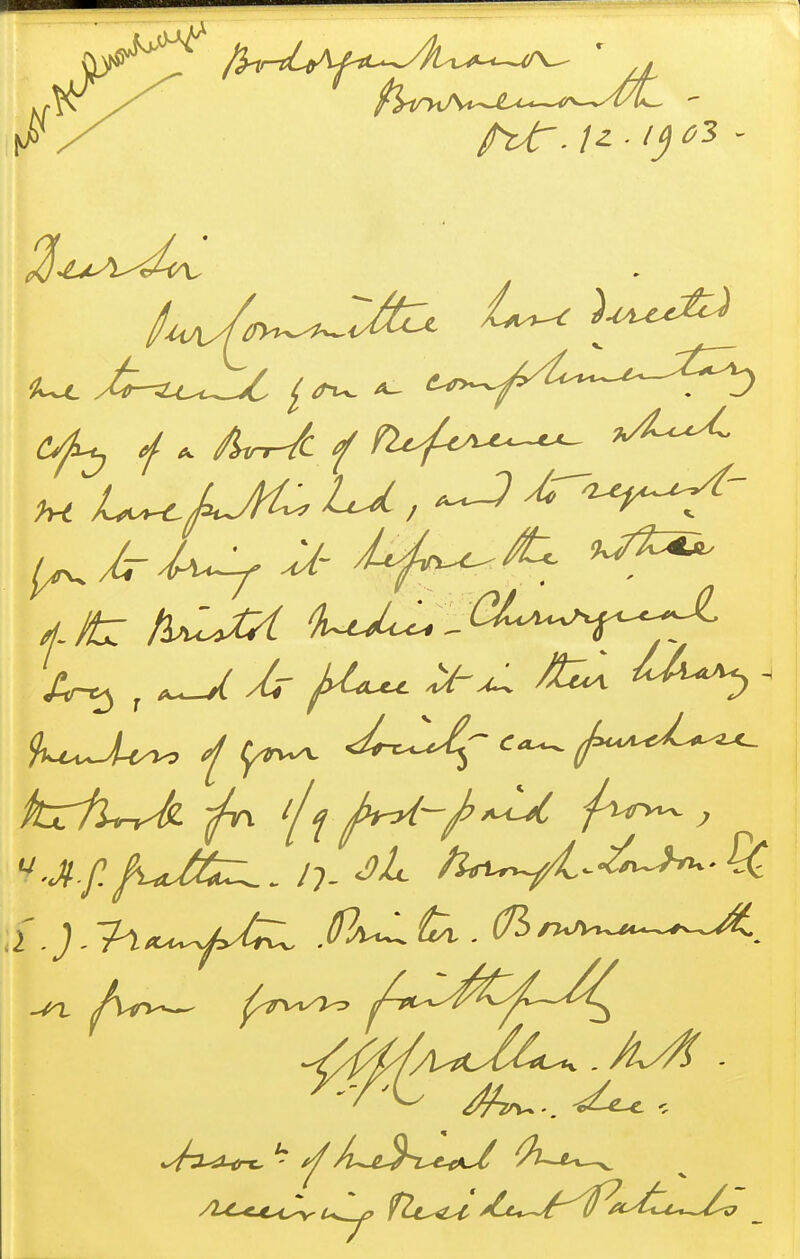 not Acknowledged
Bodorgan Manor
Bournemouth -
Oct. 12. 1903 -
Dear Sir
Our Committee have directed
me to send you a complimentary
copy of a Book of Reference which
we have published, and to request
you to bring it before the notice
of the Bristol Medico-Chirurgical
Socy, and to place it in their library -
Members of your Society can purchase
the Book for 1/9 post-paid from,
H.J. Grattan. 17. The Borough. London. EC
F.J. Frampton. Printer. Bournemouth.
or from yours faithfully
Crallan. M.B.
Hon. Sec.
Assocn of Medical Men
receiving Resident Patients -